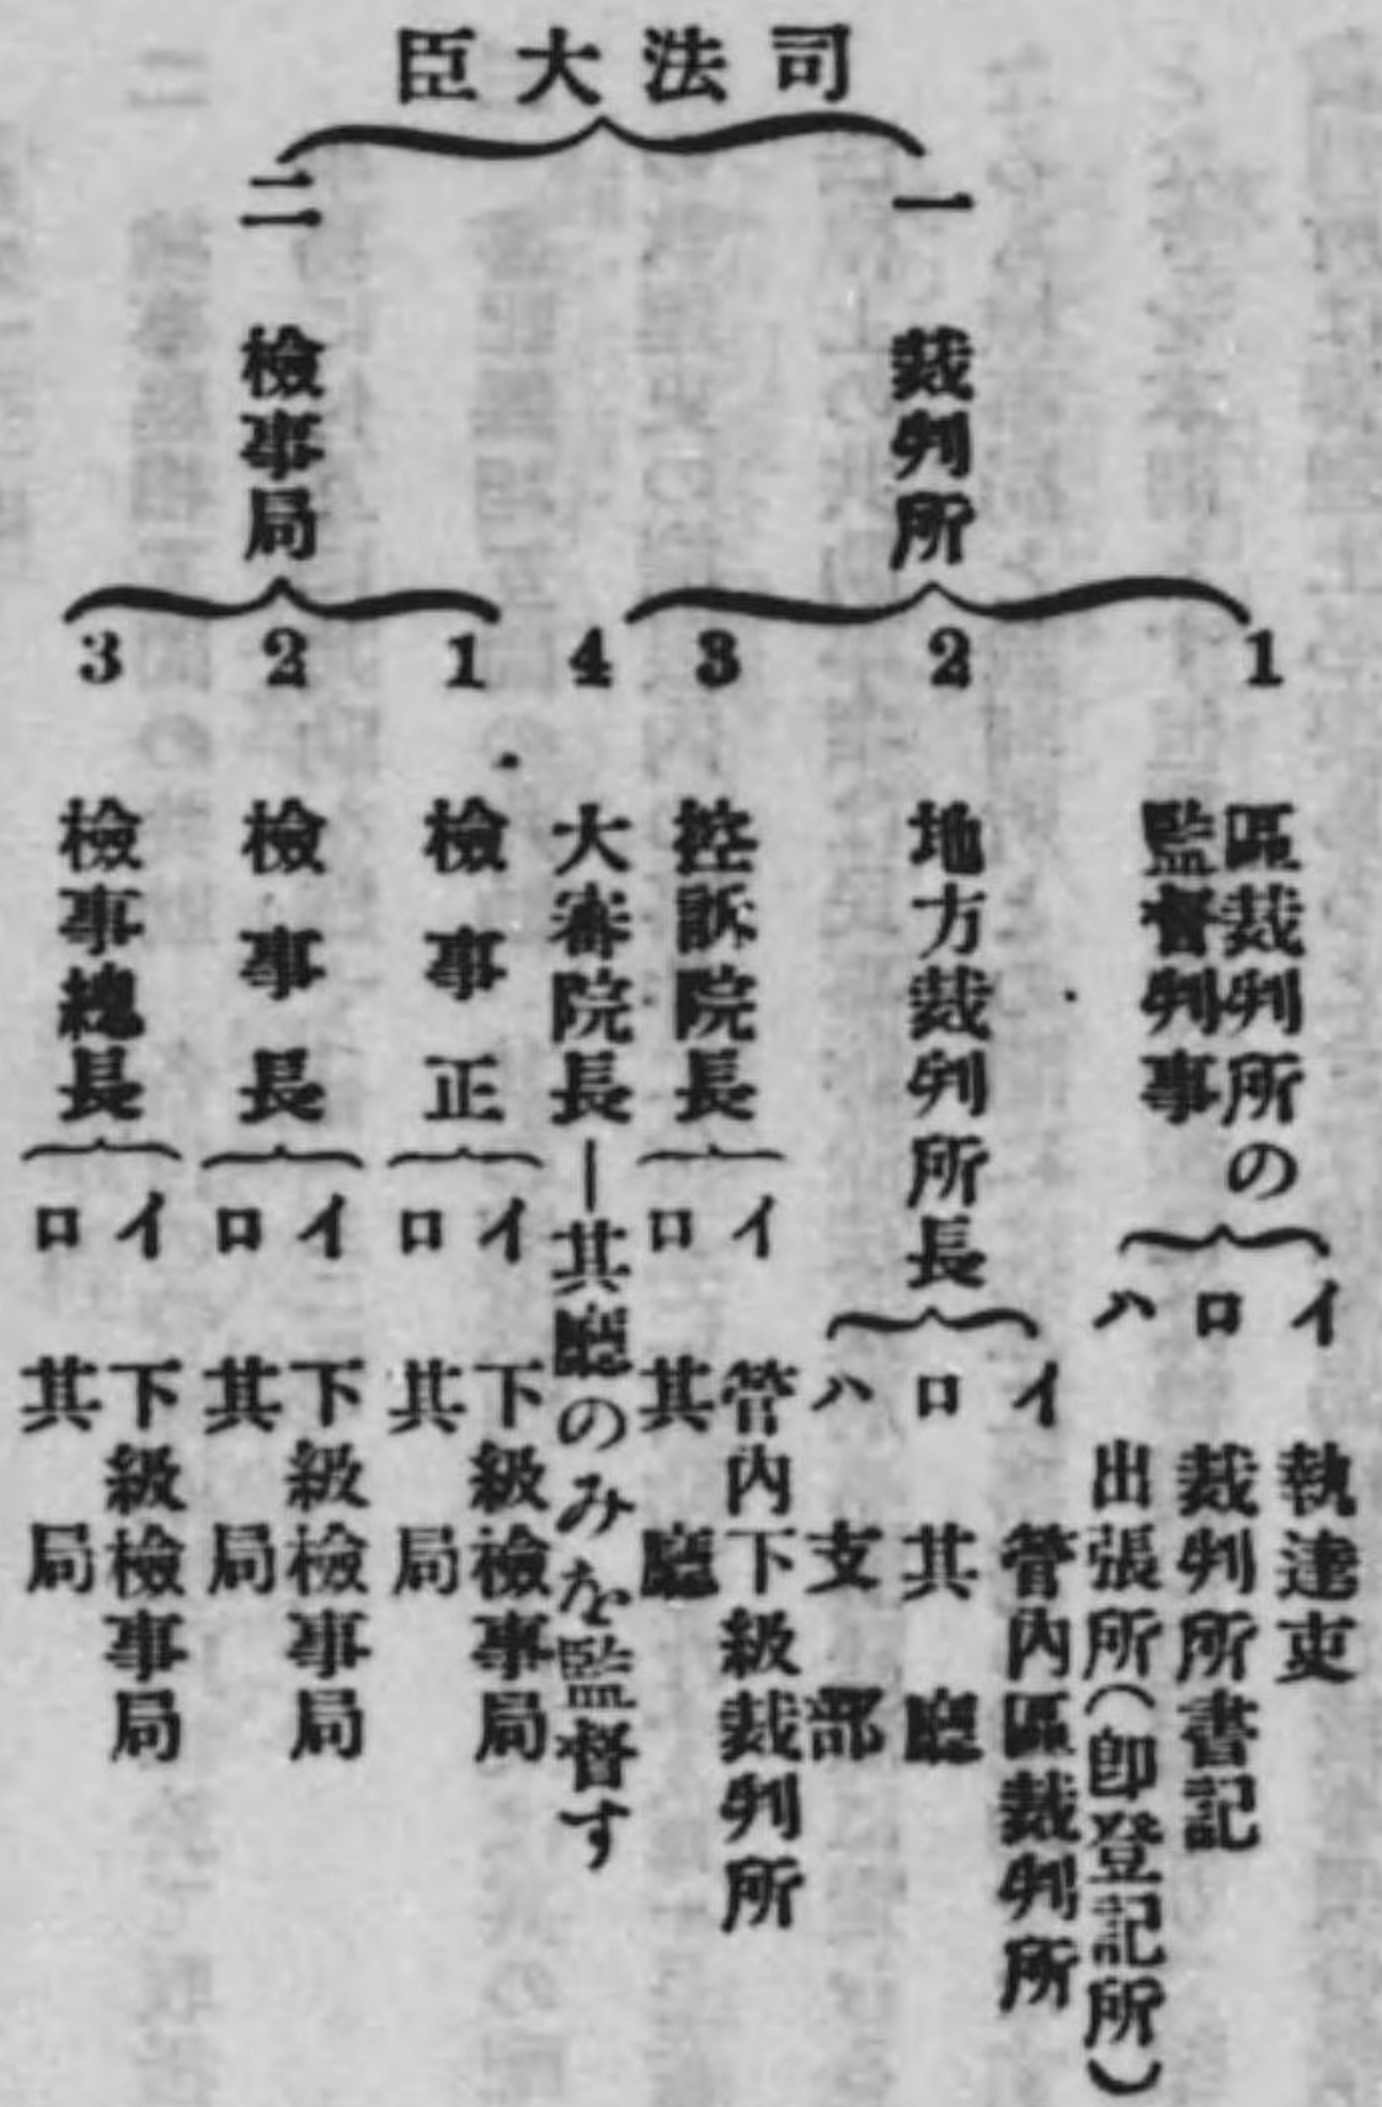 司法大臣
一 裁判所
1 區裁判所の
監督判事
イ 執達吏
ロ 裁判所書記
ハ 出張所(卽登記所)
2 地方裁判所長
イ 管內區裁判所
ロ 其廳
ハ 支部
3 控訴院長
イ 管內下級裁判所
ロ 其廳
4 大審院長―其廳のみを監督す
二 檢事局
1 檢事正
イ 下級檢事局
ロ 其局
2 檢事長
イ 下級檢事局
ロ 其局
3 檢事總長
イ 下級檢事局
ロ 其局